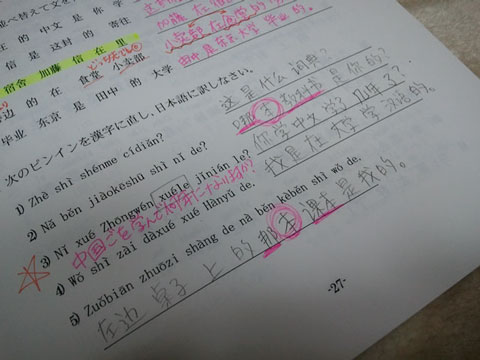 並べ替えて文を
的 中文 是 你 学
信 是 这封 的 寄往
宿舍 加藤 信 在 里
边 的 在 食堂 小卖部
毕业 东京 是 田中 的 大学
次のピンインを漢字に直し、日本語に訳しなさい。
1) Zhè shì shénme cídiǎn?
这是什么词典?
2) Nǎ běn jiàokeshū shì nǐ de?
哪本教科书是你的?
3) Nǐ xué Zhōngwén xuéle jǐnián le?
你学中文学了几年了?
中国ごを学んで何年になりますか?
4) Wǒ shì zài dàxué xué Hànyǔ de.
我是在大学学汉语的。
5) Zuǒbian zhuōzi shàng de nà běn kèběn shì wǒ de.
在边 桌子上的那本课本是我的。
-27-